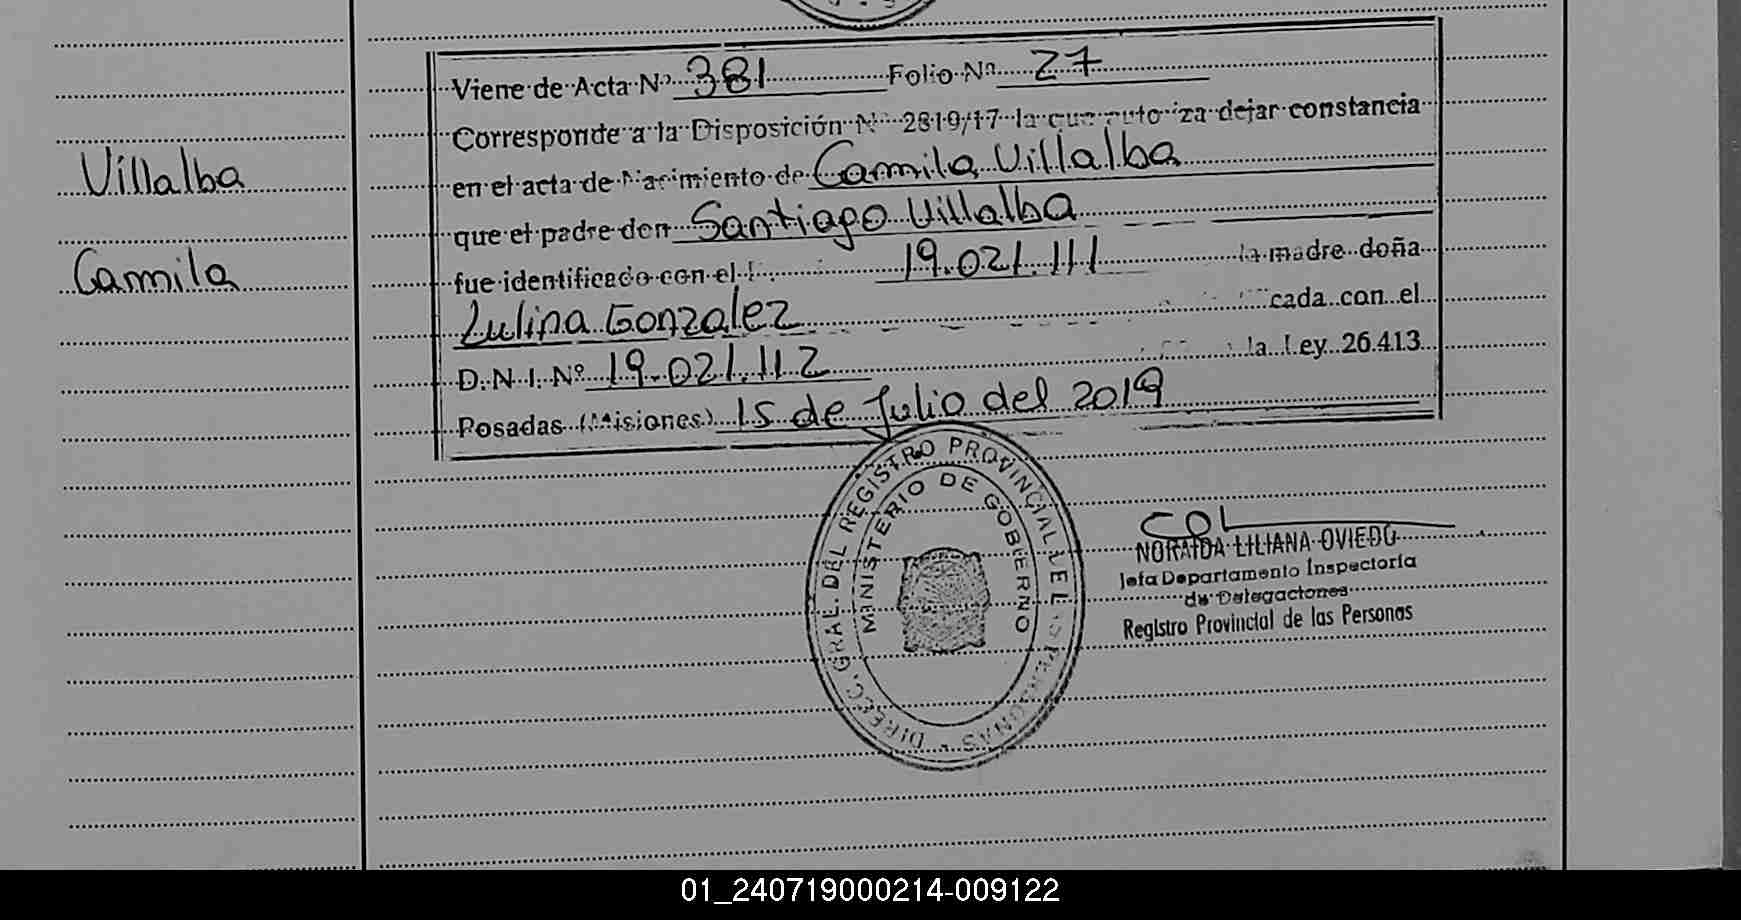 Viene de Acta Nº 381 Folio Nº 27
Corresponde a la Disposición Nº 2819/17 la que autoriza dejar constancia
Villalba
en el acta de Nacimiento de Camila Villalba
que el padre don Santiago Villalba
Camila
fue identificado con el 19.021.111 la madre doña
Zulina Gonzalez cada con el
D.N.I. Nº 19.021.112 la Ley 26.413
Posadas (Misiones) 15 de Julio del 2019
DIRECC. GRAL. DEL REGISTRO PROVINCIAL DE LAS PERSONAS
MINISTERIO DE GOBIERNO
NORAIDA LILIANA OVIEDO
Jefa Departamento Inspectoría
de Delegaciones
Registro Provincial de las Personas
01_240719000214-009122